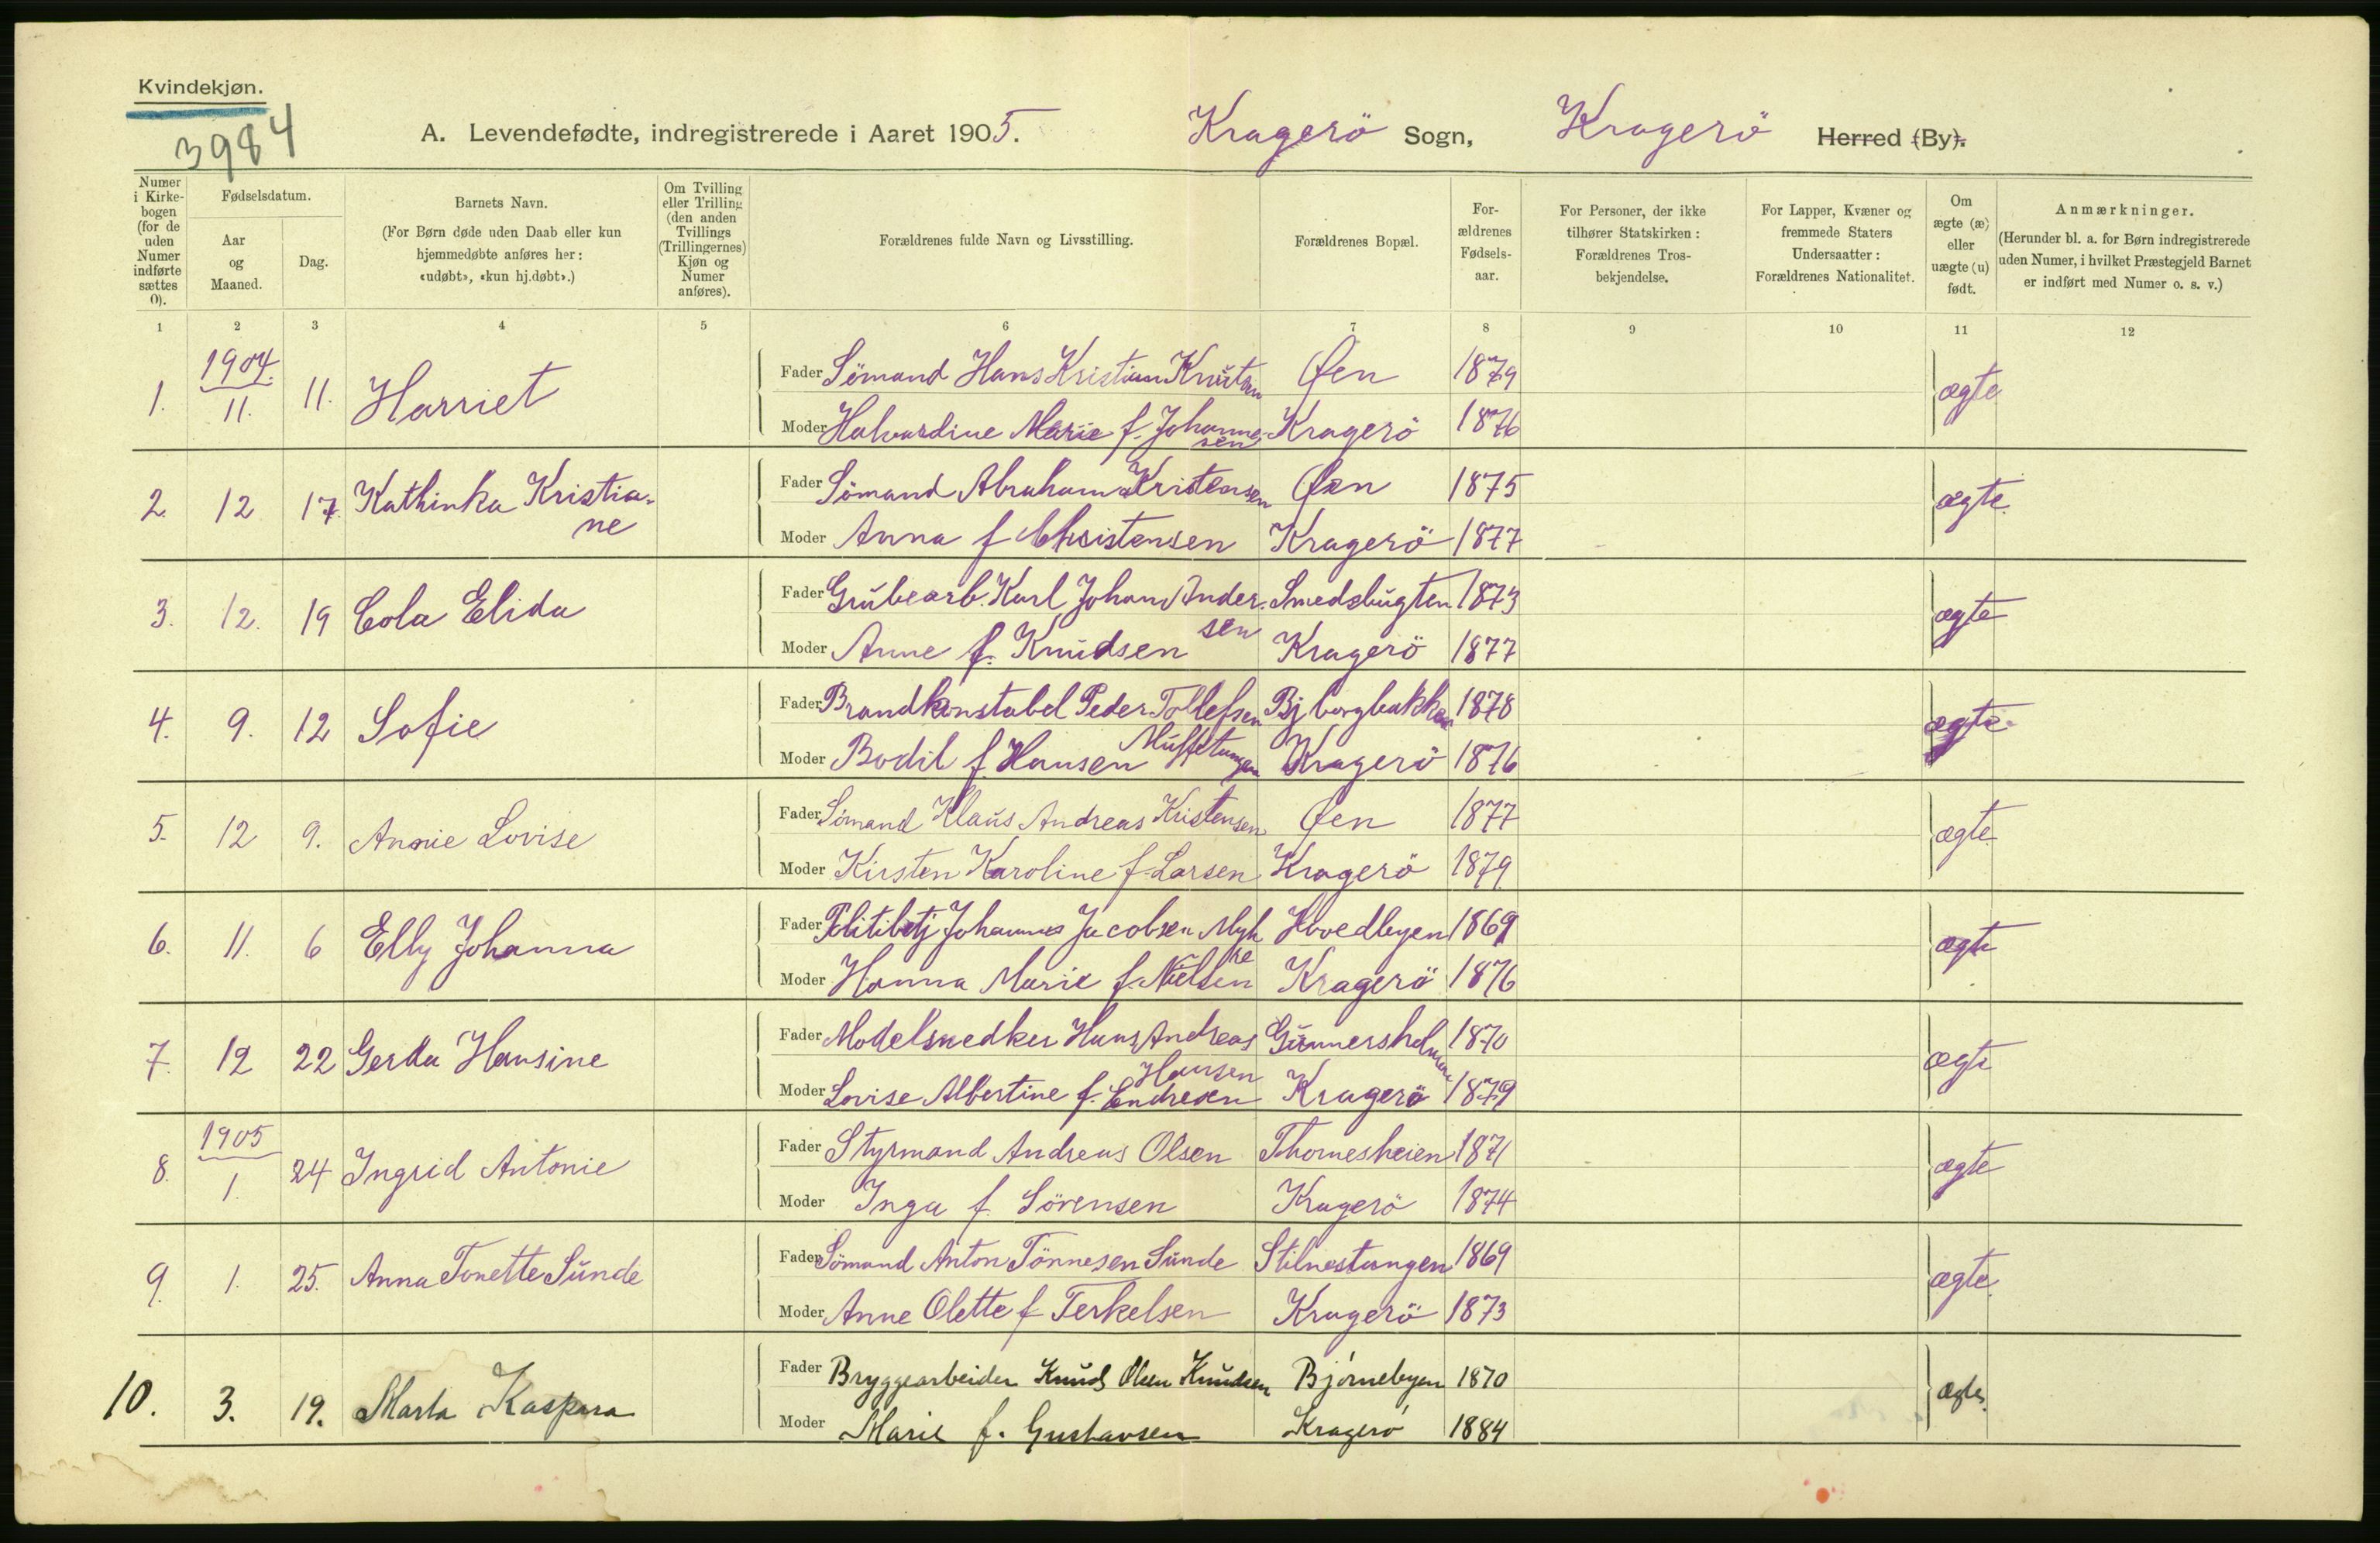 Kvindekjøn.
3984
A. Levendefødte, indregistrerede i Aaret 1905. Kragerö Sogn, Kragerö Herred (By).
Numer i Kirkebogen (for de uden Numer indførte sættes 0).
Fødselsdatum.
Aar og Maaned.
Dag.
Barnets Navn.
(For Børn døde uden Daab eller kun hjemmedøbte anføres her: «udøbt», «kun hj.døbt».)
Om Tvilling eller Trilling (den anden Tvillings (Trillingernes) Kjøn og Numer anføres).
Forældrenes fulde Navn og Livsstilling.
Forældrenes Bopæl.
Forældrenes Fødselsaar.
For Personer, der ikke tilhører Statskirken: Forældrenes Trosbekjendelse.
For Lapper, Kvæner og fremmede Staters Undersaatter: Forældrenes Nationalitet.
Om ægte (æ) eller uægte (u) født.
Anmærkninger.
(Herunder bl. a. for Børn indregistrerede uden Numer, i hvilket Præstegjeld Barnet er indført med Numer o. s. v.)
1 2 3 4 5 6 7 8 9 10 11 12
1. 1904. 11. 11. Harriet Fader Sömand Hans Kristian Knutsen Øen 1879 ægte
Moder Halvardine Marie f. Johannesen Kragerö 1876
2. 12 17. Kathinka Kristiane Fader Sömand Abraham Kristensen Øen 1875 ægte.
Moder Anna f Christensen Kragerö 1877
3. 12. 19 Cola Elida Fader Grubearb. Karl Johan Andersen Smedsbugten 1873 ægte
Moder Anne f. Knudsen Kragerö 1877
4. 9. 12 Sofie Fader Brandkonstabel Peder Tollefsen Bjborgbakken 1878 ægte
Moder Bodil f. Hansen Kragerö 1876
5. 12 9. Annie Lovise Fader Sömand Klaus Andreas Kristensen Øen 1877 ægte
Moder Kirsten Karoline f. Larsen Kragerö 1879
6. 11. 6 Elly Johanna Fader Politibetj Johannes Jacobsen Myhre Hovedbyen 1869 ægte
Moder Hanna Marie f. Nielsen Kragerö 1876
7. 12 22 Gerda Hansine Fader Modelsnedker Hans Andreas Hansen Gunnersholmen 1870 ægte
Moder Lovise Albertine f. Endresen Kragerö 1879
8. 1905 1. 24 Ingrid Antonie Fader Styrmand Andreas Olsen Thomesheien 1871 ægte
Moder Inga f. Sörensen Kragerö 1874
9. 1. 25. Anna Tonette Sunde Fader Sömand Anton Tönnesen Sunde Stilnestangen 1869 ægte
Moder Anne Olette f Terkelsen Kragerö 1873
10. 3. 19. Marta Kaspara Fader Bryggearbeider Knud Olsen Knudsen Björnebyen 1870 ægte.
Moder Marie f. Gustavsen Kragerö 1884